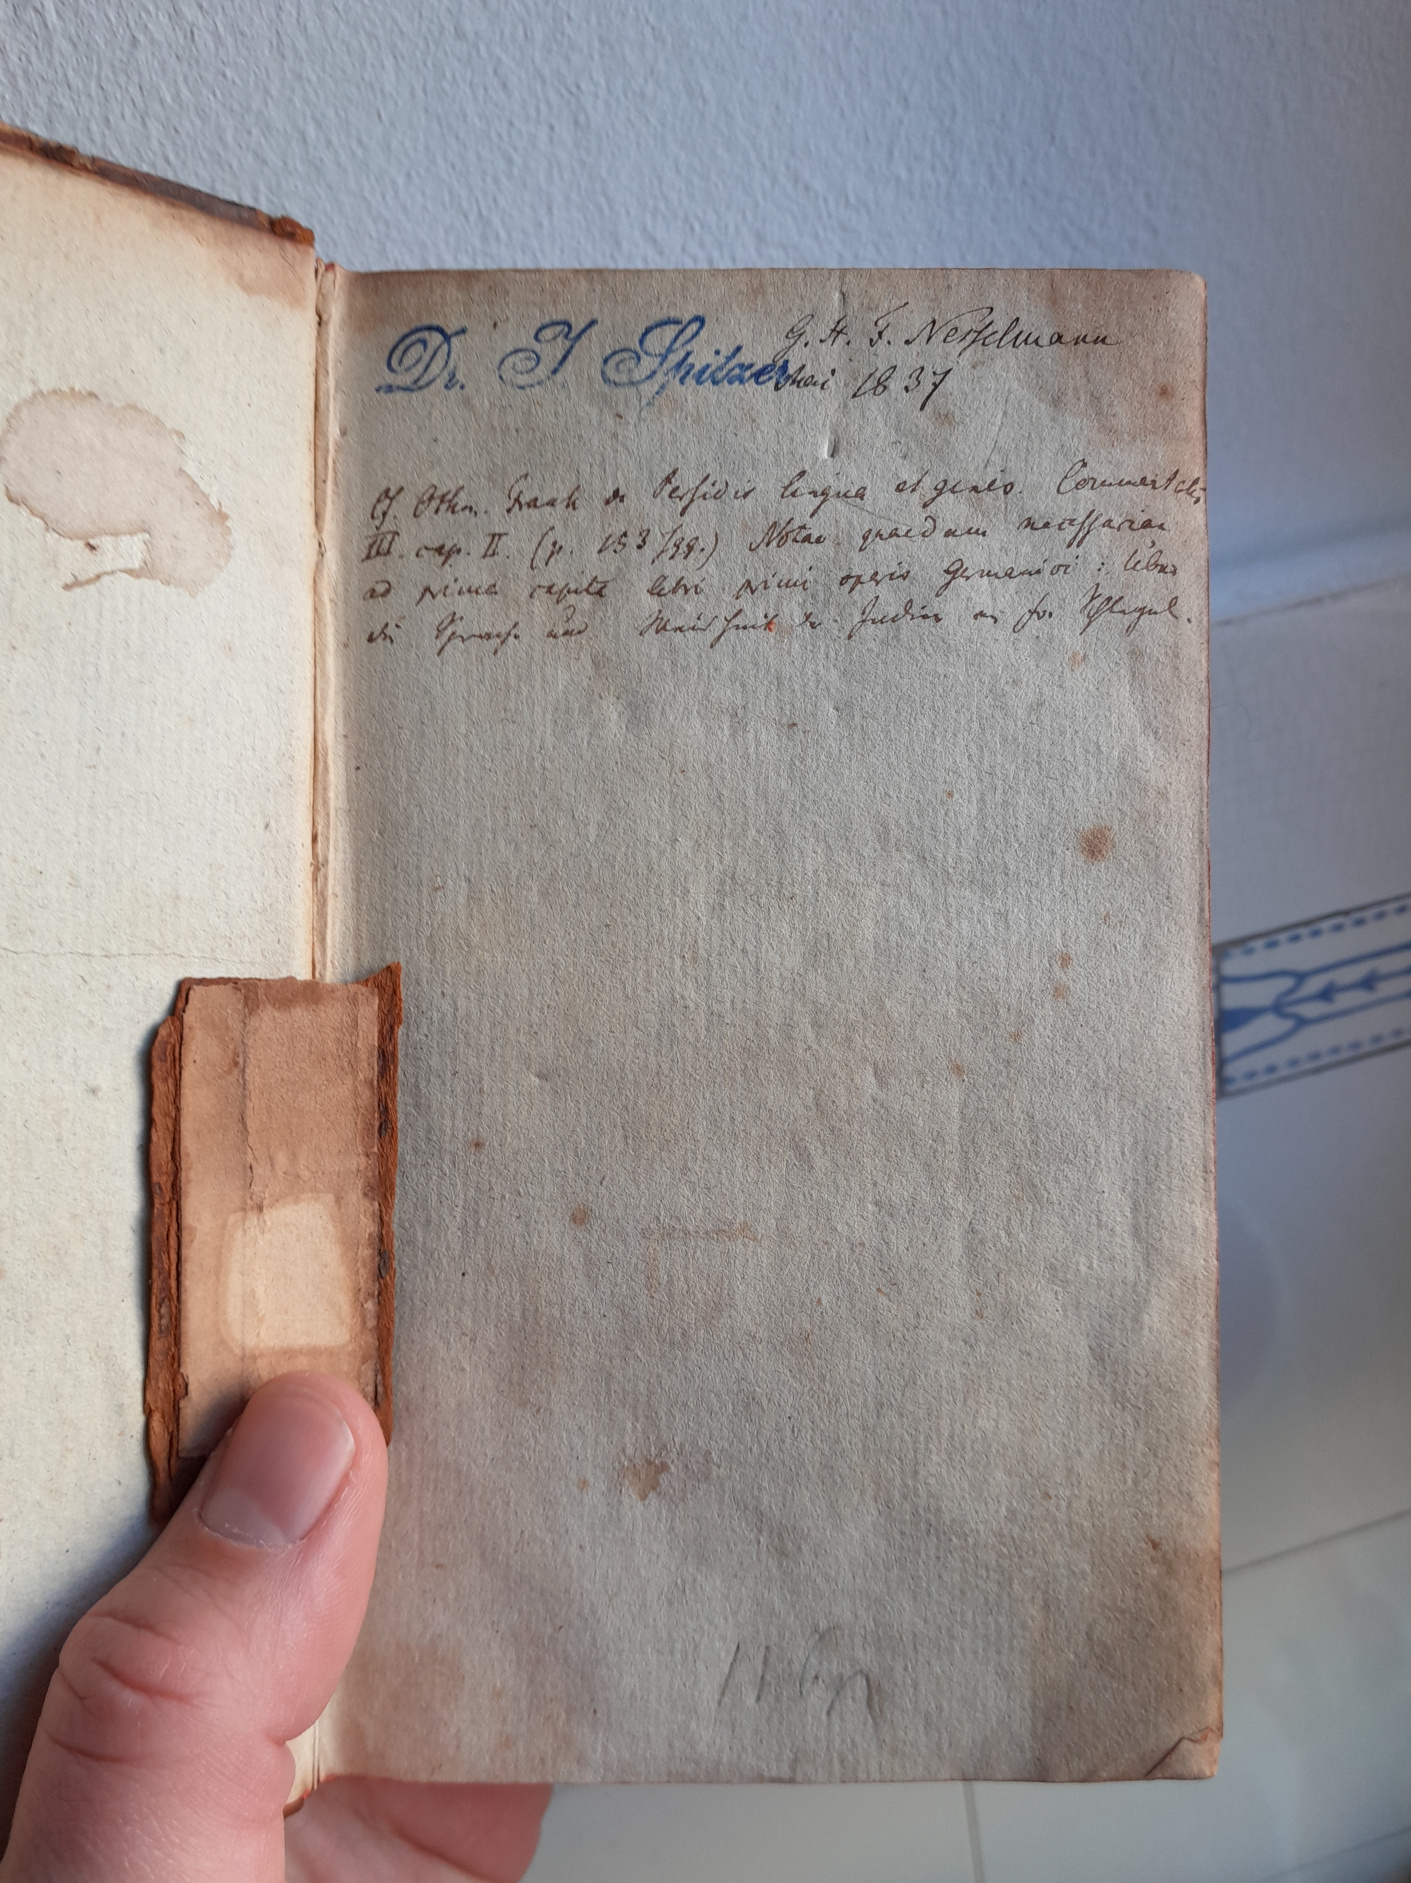 Dr. I Spitzer
G. H. F. Nesselmann
Mai 1837
Cf. Othm. Frank de Persidis lingua et genio. Comment
III. cap. II. (p. 153 sqq.) Notae quaedam necessariae
ad prima capita libri primi operis Germanici: Ueber
die Sprache und Weisheit der Indier von Fr. Schlegel.